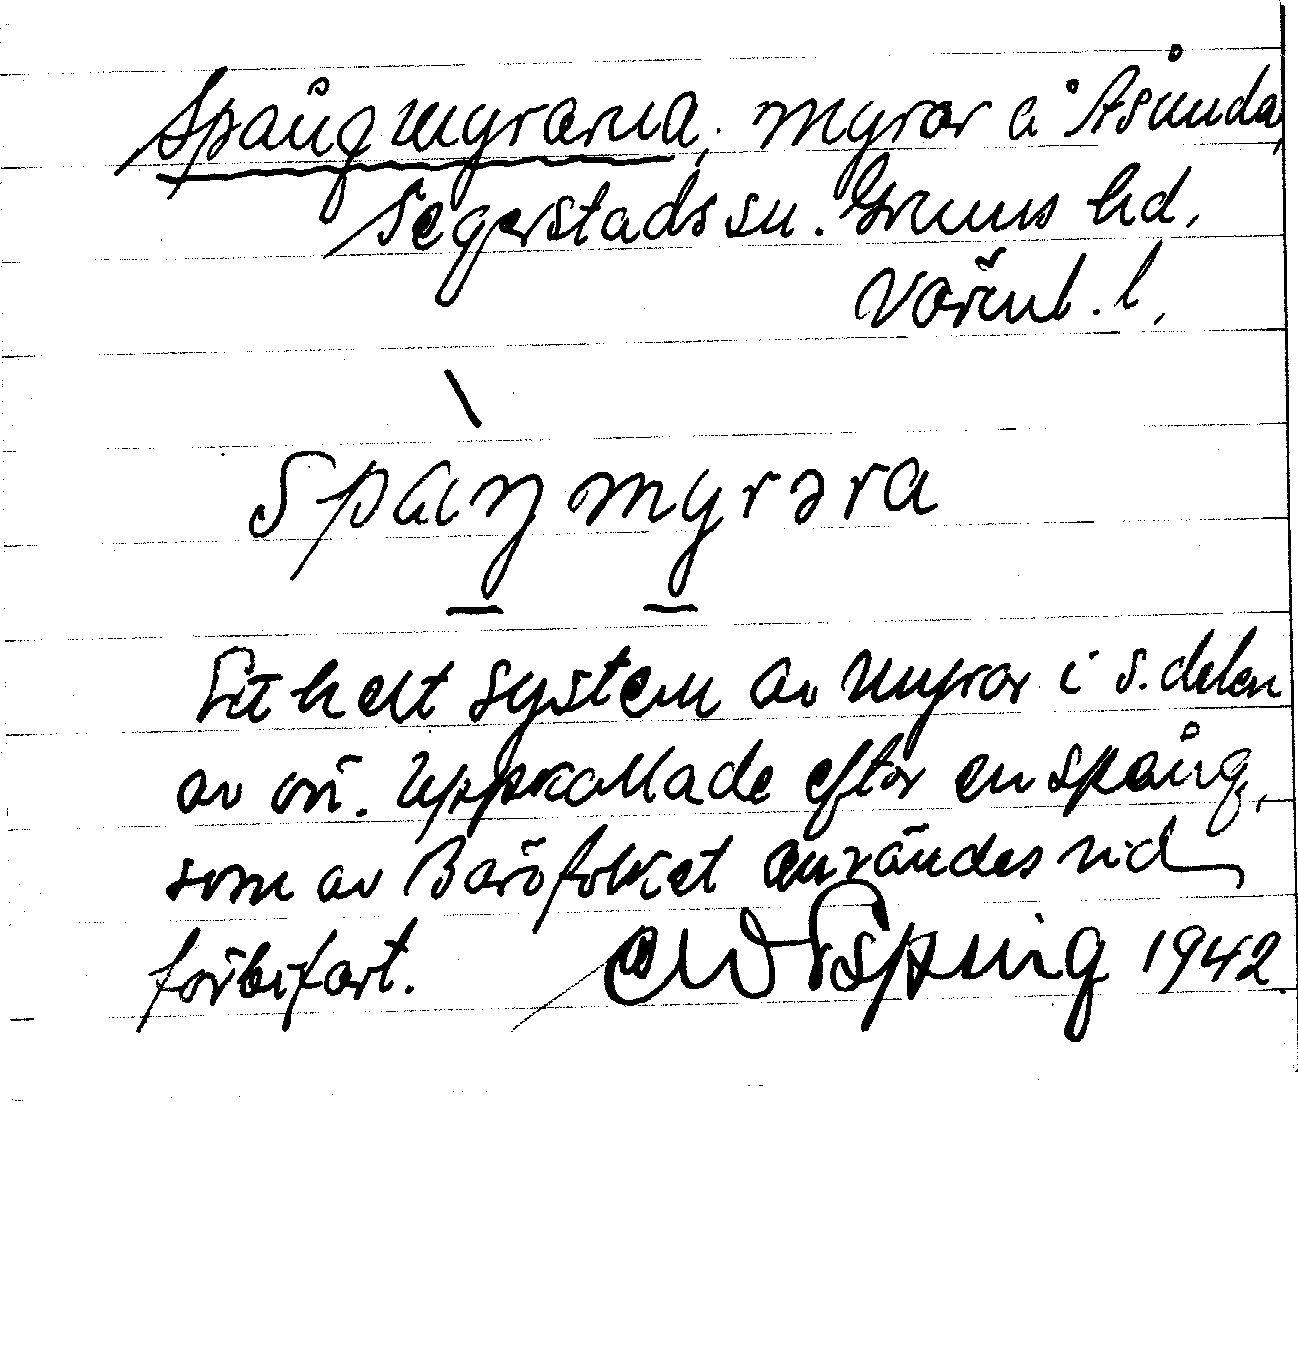 Spångmyrarna, myrar å Åsunda,
Segerstads sn. Grums hd,
Värml. l,
Spåŋmyrəra
Ett helt system av myrar i s. delen
av ori. Uppkallade efter en spång,
som av Baröfolket användes vid
förbifart. Spring 1942.